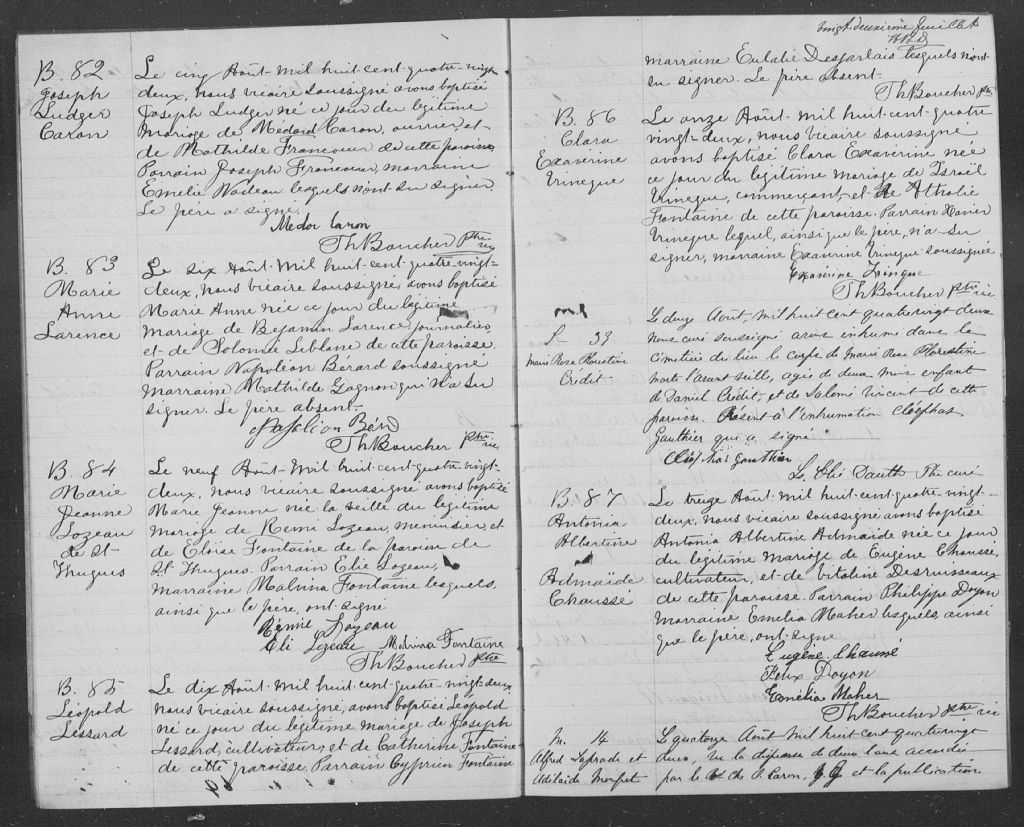 B. 82
Joseph
Ludger
Caron
Le cinq Août mil huit-cent-quatre-vingt
deux, nous vicaire soussigné avons baptisé
Joseph Ludger né ce jour du légitime
Mariage de Medard Caron, ouvrier, et
de Mathilde Francoeur de cette paroisse
Parrain Joseph Francoeur, marraine
Emelie Nadeau lesquels n'ont su signer.
Le père a signé.
Medor Caron
Th Boucher Ptre
vic
B. 83
Marie
Anne
Larence
Le six Août mil huit-cent-quatre-vingt-
deux, nous vicaire soussigné avons baptisé
Marie Anne née ce jour du légitime
mariage de Bejamin Larence journalier
et de Solomée Leblanc de cette paroisse.
Parrain Napoléon Bérard soussigné
marraine Mathilde Gagnon qui n'a su
signer. Le père absent.
Th Boucher Ptre
vic
B. 84
Marie
Jeanne
Lozeau
de St-
Hugues
Le neuf Août mil huit-cent-quatre-vingt-
deux, nous vicaire soussigné avons baptisé
Marie Jeanne née la veille du légitime
mariage de Remi Lozeau, menuisier, et
de Eloïse Fontaine de la paroisse de
St. Hugues. Parrain Elie Lozeau,
marraine Malvina Fontaine lesquels,
ainsi que le père, ont signé
Rémie Lozeau
Eli Lozeau Malvina Fontaine
Th Boucher Ptre
B. 85
Léopold
Lessard
Le dix Août mil huit-cent-quatre-vingt-deux
nous vicaire soussigné, avons baptisé Léopold
né ce jour du légitime mariage de Joseph
Lessard, cultivateur, et de Catherine Fontaine
de cette paroisse. Parrain Cyprien Fontaine
vingt-deuxième feuillet
marraine Eulalie Desjarlais lesquels n'ont
su signer. Le père absent.
Th Boucher Ptre
B. 86
Clara
Exavérine
Vrinegue
Le onze Août mil huit-cent-quatre
vingt-deux, nous vicaire soussigné
avons baptisé Clara Exavérine née
ce jour du légitime mariage de Israël
Vrinegue, commerçant, et de Athalie
Fontaine de cette paroisse. Parrain Xavier
Vrinegue lequel, ainsi que le père, n'a su
signer, marraine Exavérine Vrinegue soussignée
Exavérine
Th Boucher Ptre vic
S- 39
Marie Rose Florestine
Crédit
Le douze Aout mil huit cent quatrevingt deux
Nous curé soussigné avons inhumé dans le
cimetière du lieu le corps de Marie Rose Florestine
morte l'avant veille, agée de deux mois enfant
de Daniel Crédit, et de Salomé Vincent de cette
paroisse. Présent à l'inhumation Cléophas
Gauthier qui a signé
Cléophas gauthier
Ptre curé
B. 87
Antonia
Albertine
Admaïde
Chaussé
Le treize Août mil huit-cent-quatre-vingt-
deux, nous vicaire soussigné avons baptisé
Antonia Albertine Admaïde née ce jour
du légitime mariage de Eugène Chaussé,
cultivateur, et de Vitaline Desruisseaux
de cette paroisse. Parrain Philippe Doyon
Marraine Emelia Maher lesquels, ainsi
que le père, ont signé
Eugène Chaussé
Félix Doyon
Emélia Maher
Th Boucher Ptre vic
M. 14
Alfred Laprade et
Adelaïde
Le quatorze Aout mil huit cent quatrevingt
deux, Vu la dispense de deux bans accordée
par le Ch. O. Caron, V.G et la publication